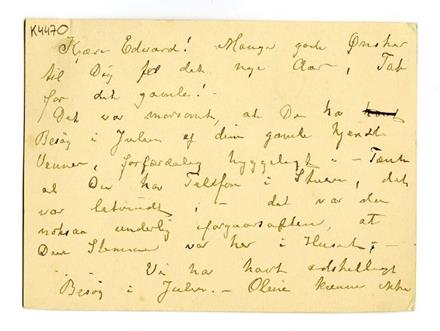 K4470
Kjære Edvard! Mange gode Ønsker
til Dig for det nye Aar, Tak
for det gamle! -
Det var morsomt, at Du har havt
Besøg i Julen af dine gamle kjendte
Venner, forfærdelig hyggeligt - Tænk
at Du har Telefon i Stuen, det
var letvindt; - det var den
noksaa underlig forgaarsaften, at
Din Stemme var her i Huset; -
Vi har havt adskilligt
Besøg i Julen. - Oline kommer